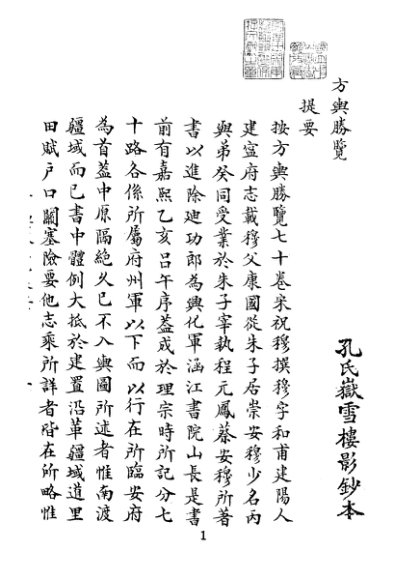 孔氏嶽雪樓影鈔本
方輿勝覽
提要
按方輿勝覽七十卷宋祝穆撰穆字和甫建陽人
建寧府志載穆父康國從朱子居崇安穆少名丙
與弟癸同受業於朱子宰執程元鳳蔡安穆所著
書以進除迪功郎為興化軍涵江書院山長是書
前有嘉熙乙亥呂午序蓋成於理宗時所記分七
十路各係所屬府州軍以下而以行在所臨安府
為首蓋中原隔絕久已不入輿圖所述者惟南渡
疆域而已書中體例大抵於建置沿革疆域道里
田賦戶口關塞險要他志乘所詳者皆在所略惟
1